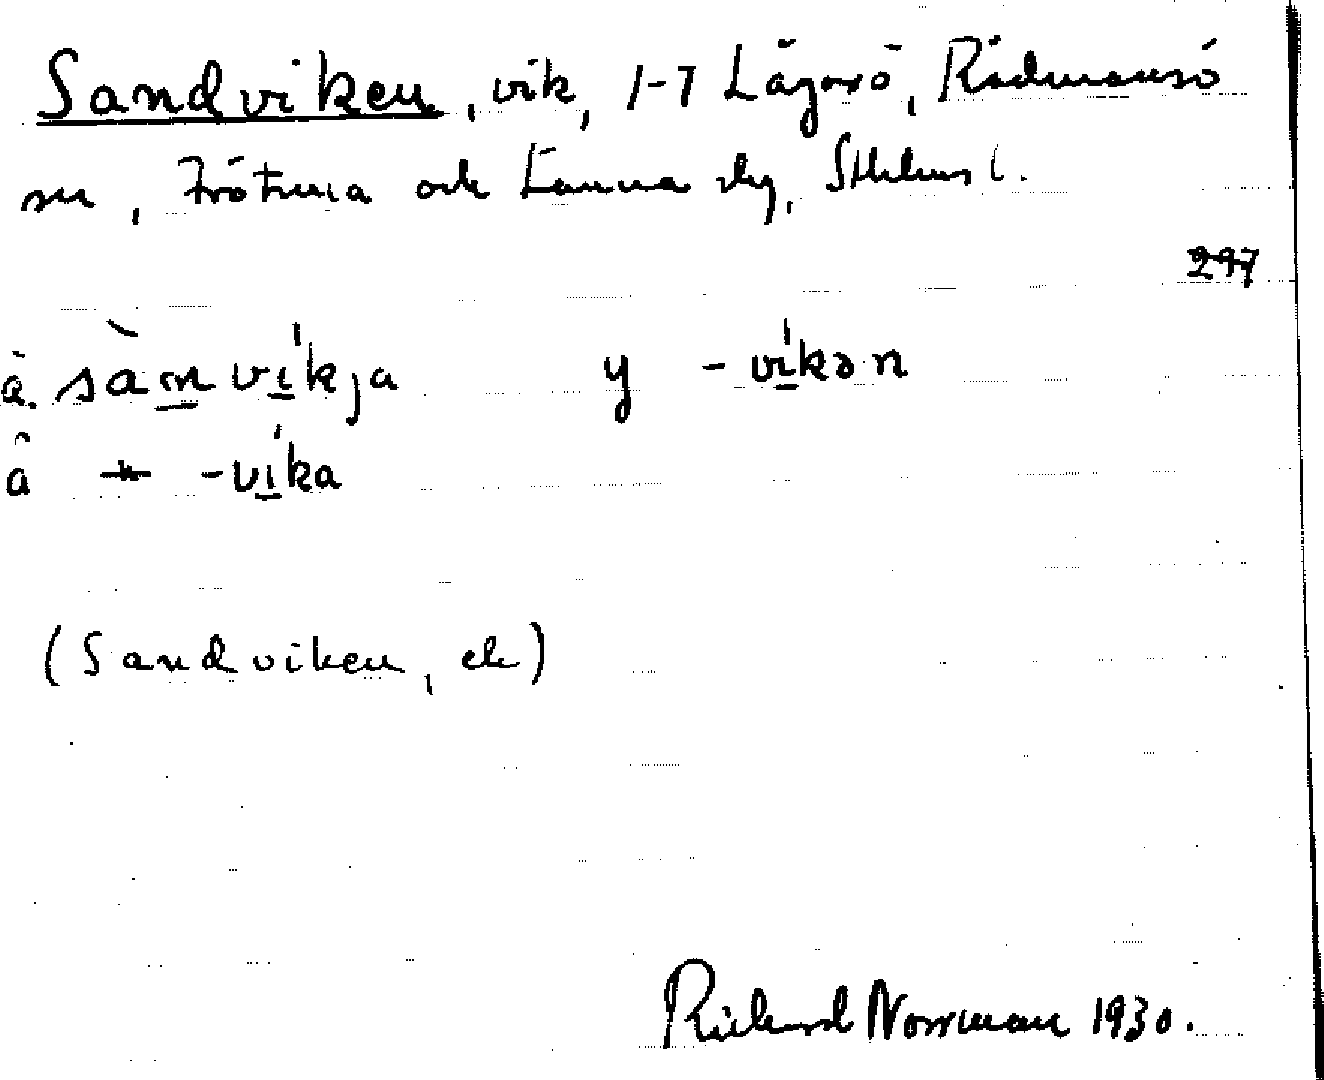 Sandviken, vik, 1-7 Lågarö, Rådmansö
sn, Frötuna och Länna skg, Sthlms l.
297
å. sàmvíkja y -víkən
å -víka
(Sandviken, ek)
Rickard Norrman 1930.